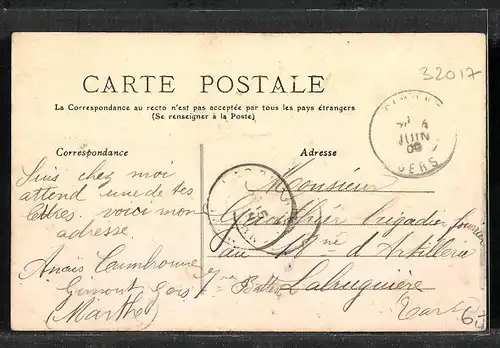 32017
CARTE POSTALE
La Correspondance au recto n'est pas acceptée par tous les pays étrangers
(Se renseigner à la Poste)
Correspondance
Adresse
JUIN
09
GERS
Suis chez moi
attend une de tes
lettres. voici mon
adresse.
Anaïs
Gimont Gers
(Marthe)
Monsieur
brigadier fourrier
au 18me d'Artillerie
Labruguière
Tarn